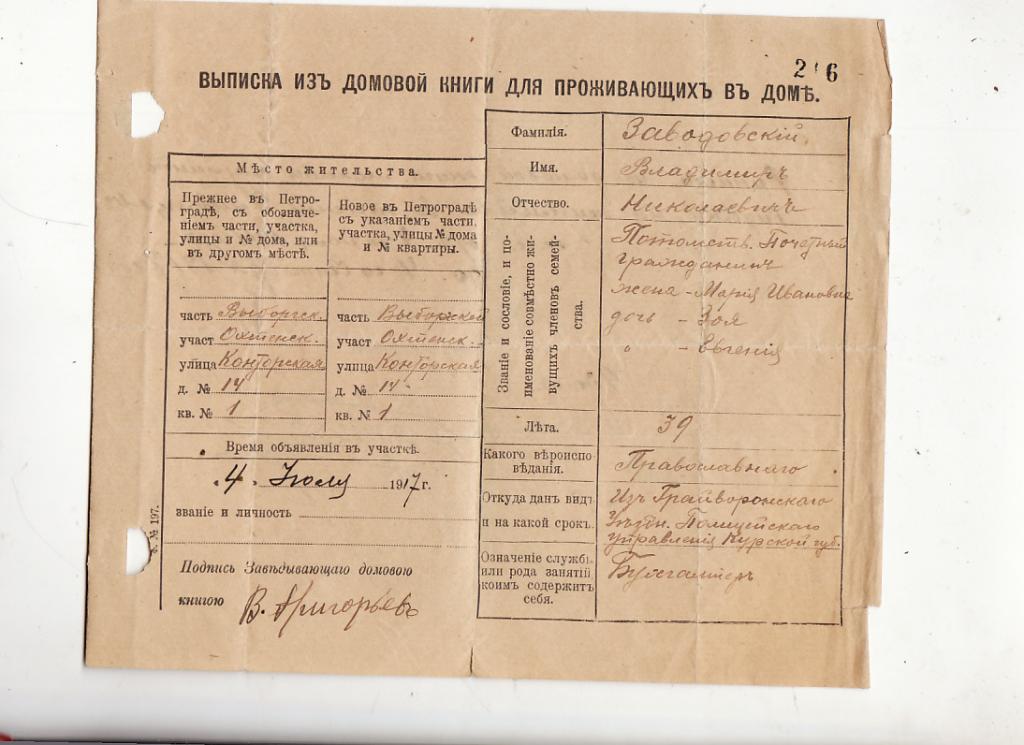 2 6
ВЫПИСКА ИЗЪ ДОМОВОЙ КНИГИ ДЛЯ ПРОЖИВАЮЩИХЪ ВЪ ДОМѢ.
Мѣсто жительства.
Прежнее въ Петро-
градѣ, съ обозначе-
ніемъ части, участка,
улицы и № дома, или
въ другомъ мѣстѣ.
Новое въ Петроградѣ
съ указаніемъ части,
участка, улицы № дома
и № квартиры.
часть Выборгск.
участ Охтенск.
улица Конторская
д. № 14
кв. № 1
часть Выборжской
участ Охтенск.
улица Конторская
д. № 14
кв. № 1
Время объявленія въ участкѣ.
4 Іюля 1917 г.
званіе и личность
Подпись Завѣдывающаго домовою
книгою В. Григорьевъ
ф. № 197.
Фамилія. Заводовскій
Имя. Владимиръ
Отчество. Николаевичъ
Званіе и сословіе, и по-
именованіе совмѣстно жи-
вущихъ членовъ семей-
ства.
Потомств. Почетный
гражданинъ
жена - Марія Ивановна
дочь - Зоя
" - Евгенія
Лѣта. 39
Какого вѣроиспо-
вѣданія.
Православнаго
Откуда данъ видъ
и на какой срокъ.
Изъ Грайворонскаго
Уѣздн. Полицейскаго
управленія Курской губ.
Означеніе службы
или рода занятій
коимъ содержитъ
себя.
Бухгалтеръ